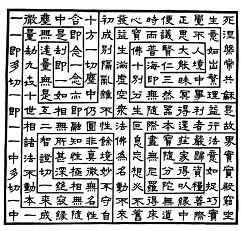 一微塵中含十初發心時便正覺生死
一量無是即方成益寶雨議思不意涅
即劫遠劫念一別生佛普賢大人如槃
多九量即一切隔滿十海仁能境出常
切世無一念塵亂虛別印三昧中繁共
一十是如亦中雜空分無然冥事理和
即世互相即仍不衆生隨器得利益是
一相二無融圓性法叵際本還者行故
一諸智所知非餘佛息盡寶莊嚴法界
中法證甚性真境為妄無隨家歸意實
多不切深極微妙名想尼分得資如寶
切動一絕相無不動必羅陀以糧捉殿
一本來寂無名守不不得無緣善巧窮
中一成緣隨性自來舊床道中際實坐